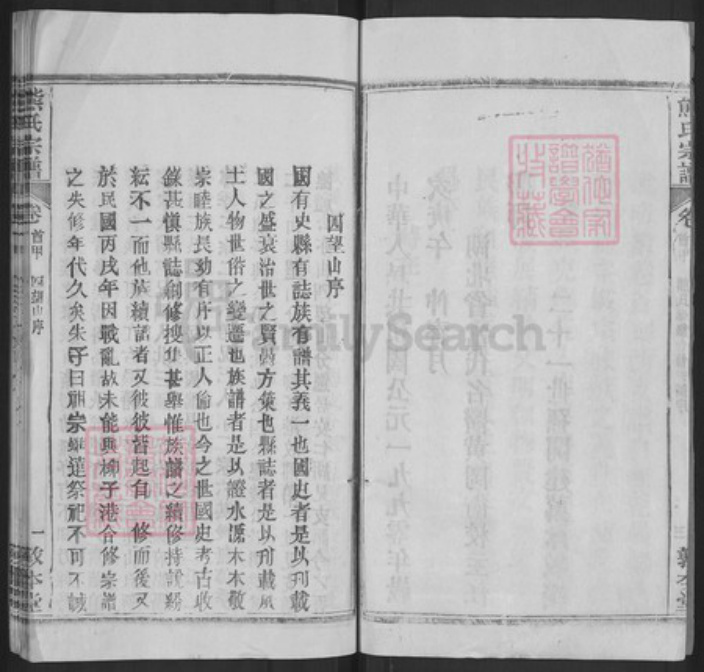 熊氏宗譜
卷
三
敦本堂
猶他家
譜學會
收藏
FamilySearch
囚望山序
國有史縣有誌族有譜其義一也國史者是以刊載
國之盛衰治世之賢 方策也縣誌者是以刊載風
土人物世俗之變遷也族譜者是以證水源木本敬
宗睦族長幼有序以正人倫也今之世國史考古收
錄甚慎縣誌創修搜集甚舉惟族譜之續修持說紛
紜不一而他族續譜者又彼彼皆起自 修而後又
於民國丙戌年因戰亂故未能與柳子港合修宗譜
之失修年代久矣朱子曰祖宗雖遠祭祀不可不誠
熊氏宗譜
卷首甲
望山序
一
敦本堂